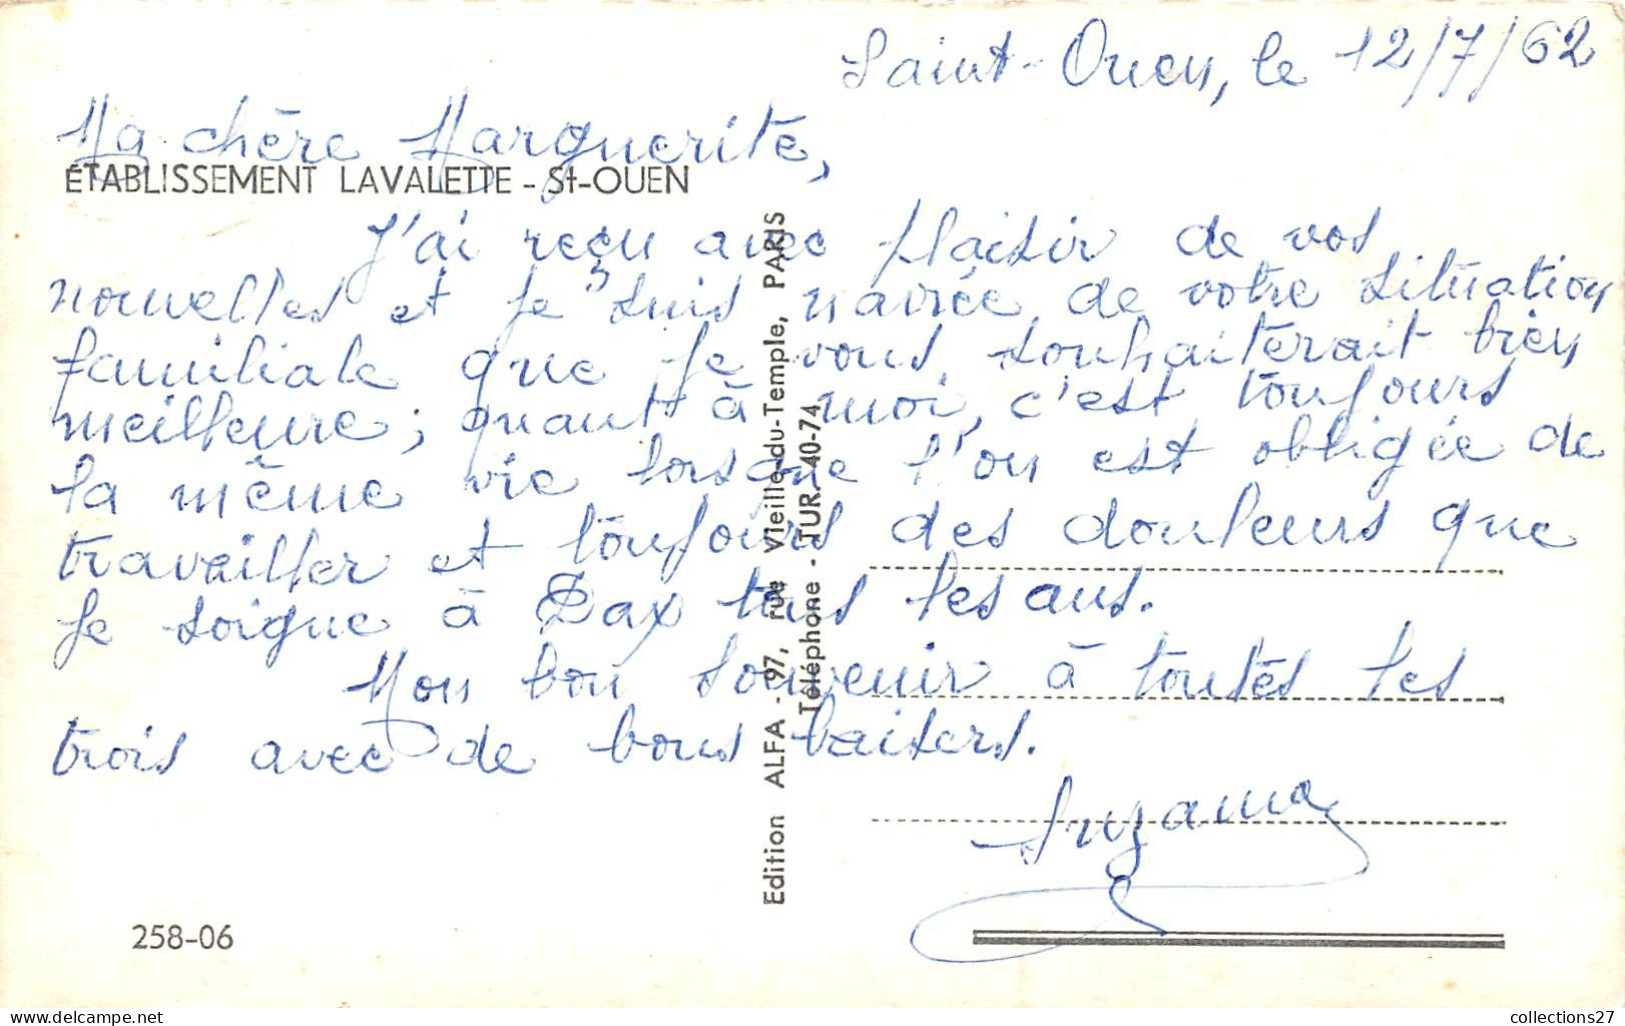 Saint-Ouen, le 12/7/62
Ma chère Marguerite,
ÉTABLISSEMENT LAVALETTE - St-OUEN
J'ai reçu avec plaisir de vos
nouvelles et je suis navrée de votre situation
familiale que je vous souhaiterait bien
meilleure; quant à moi, c'est toujours
la même vie lorsque l'on est obligée de
travailler et toujours des douleurs que
je soigne à Dax tous les ans.
Mon bon souvenir à toutes les
trois avec de bons baisers.
Suzanne
Edition ALFA - 97, rue Vieille-du-Temple, PARIS
Téléphone - TUR. 40-74
258-06
delcampe.net
collections27